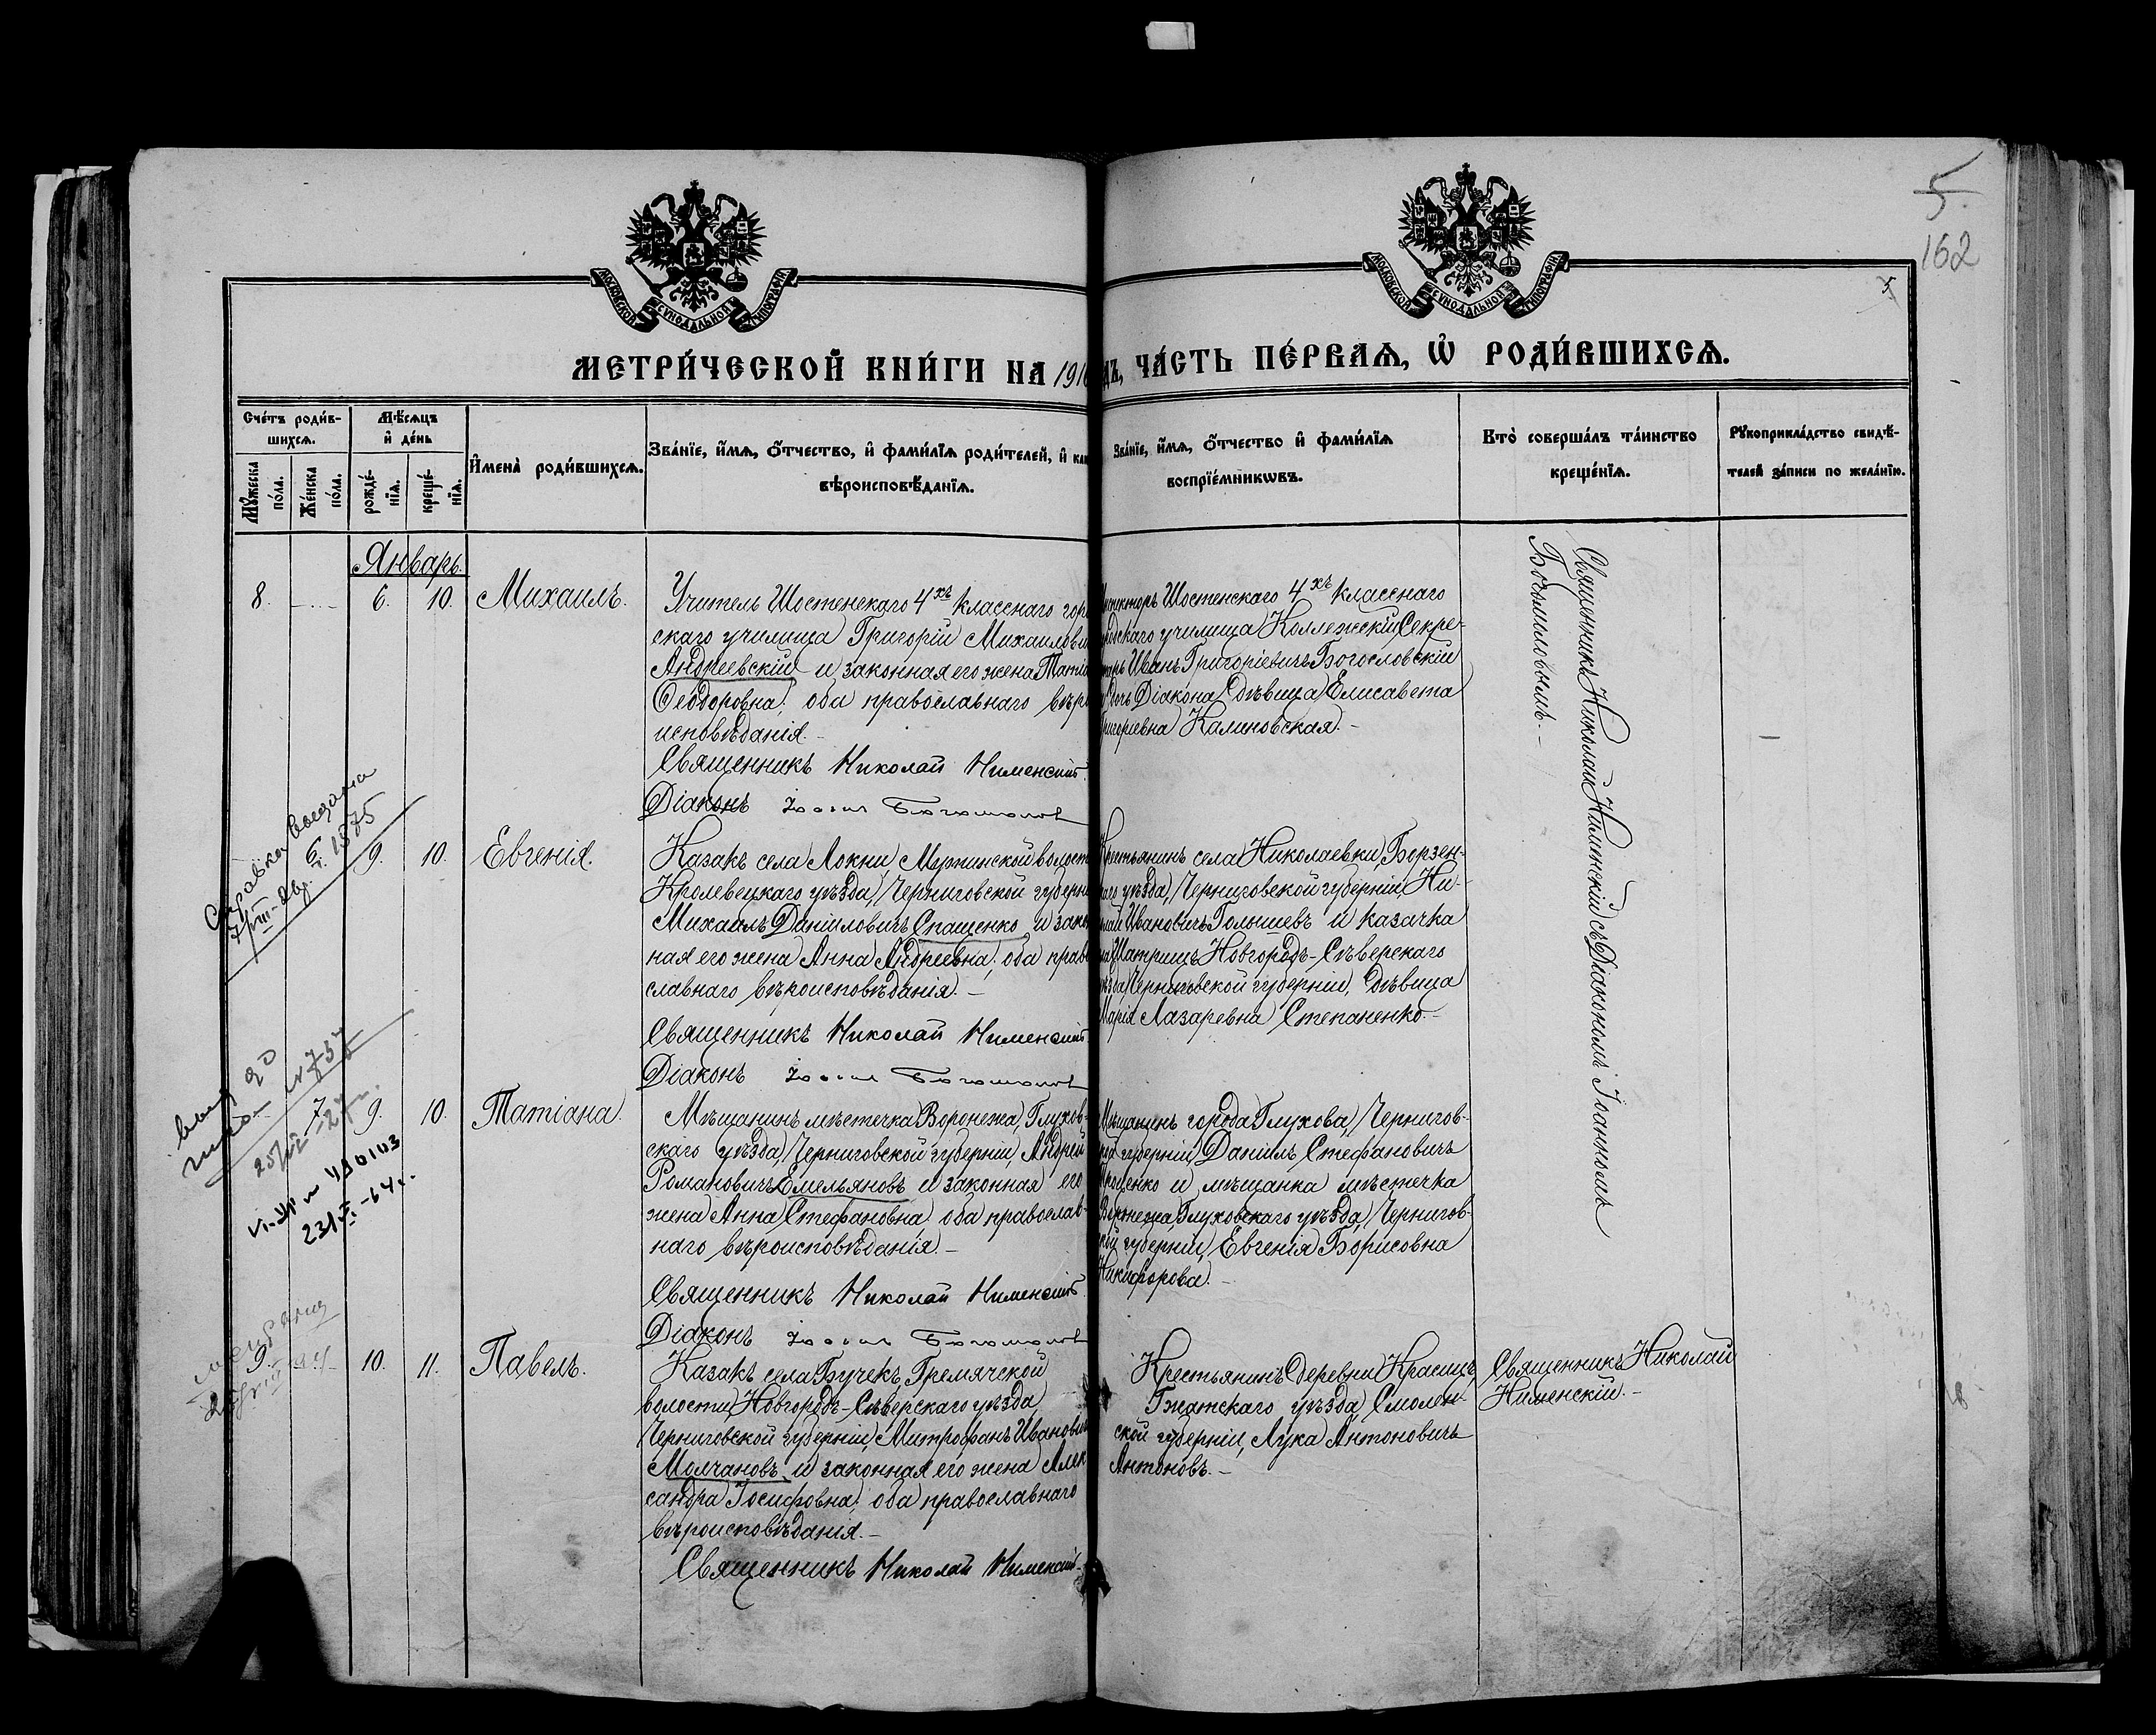 5
162
5
МОСКОВСКОЙ СѴНОДАЛЬНОЙ ТИПОГРАФІИ
МОСКОВСКОЙ СѴНОДАЛЬНОЙ ТИПОГРАФІИ
МЕТРИ́ЧЕСКОЙ КНИ́ГИ НА 191
ДЪ, ЧА́СТЬ ПЕ́РВАѦ, Ѡ҆ РОДИ́ВШИХСѦ.
Сче́тъ роди́в-
шихсѧ.
Мꙋ́жеска по́ла.
Же́нска по́ла.
Мѣ́сѧцъ
и҆ де́нь
рожде́-
нїѧ.
креще́-
нїѧ.
И҆мена̀ роди́вшихсѧ.
Зва́нїе, и҆́мѧ, ѻ҆́тчество, и҆ фами́лїѧ роди́телей, и҆ как
вѣроисповѣ́данїѧ.
Зва́нїе, и҆́мѧ, ѻ҆́тчество и҆ фами́лїѧ
воспрїе́мникѡвъ.
Кто̀ соверша́лъ та́инство
креще́нїѧ.
Рꙋкоприкла́дство свидѣ́-
телей за́писи по жела́нїю.
Январь.
8. 6. 10. Михаилъ.
Учитель Шостенскаго 4хъ класснаго гор
скаго училища Григорій Михаилови
Андреевскій и законная его жена Татіа
Ѳеодоровна; оба православнаго вѣро
исповѣданія.-
Священникъ Николай Нименскій.
Діаконъ
Шостенскаго 4хъ класснаго
скаго училища Коллежскій Секре-
тарь Иванъ Григоріевичъ Богословскій
дочь Діакона дѣвица Елисавета
Григоріевна Калиновская.-
Священникъ Николай Нименскій съ Діакономъ Іоанномъ
Богомоловымъ.-
Справка выдана
6. 9. 10. Евгенія.
Казакъ села Локни, волост
Кролевецкаго уѣзда, Черниговской губерн
Михаилъ Даніиловичъ Спащенко и закон
ная его жена Анна Андреевна; оба право
славнаго вѣроисповѣданія.-
Священникъ Николай Нименскій
Діаконъ
Крестьянинъ села Николаевки, Борзен-
каго уѣзда, Черниговской губерніи, Ни-
Ивановичъ Голышевъ и казачка
Новгородъ-Сѣверскаго
уѣзда, Черниговской губерніи, дѣвица
Марія Лазаревна Степаненко.-
7. 9. 10. Татіана.
490103
Мѣщанинъ мѣстечка Воронежа, Глухов-
скаго уѣзда, Черниговской губерніи, Андрей
Романовичъ Емельяновъ и законная его
жена Анна Стефановна оба православ-
наго вѣроисповѣданія.-
Священникъ Николай Нименскій
Діаконъ
Мѣщанинъ города Глухова, Чернигов-
ской губерніи Даніилъ Стефановичъ
и мѣщанка мѣстечка
Воронежа, Глуховскаго уѣзда, Чернигов-
ской губерніи, Евгенія Борисовна
Никифорова.-
9. 10. 11. Павелъ.
Казакъ села Бучекъ, Гремячской
волости, Новгородъ-Сѣверскаго уѣзда
Черниговской губерніи, Митрофанъ Иванович
Молчановъ и законная его жена Алек
сандра Іосифовна; оба православнаго
вѣроисповѣданія.-
Священникъ Николай Нименскій.
Крестьянинъ деревни Красицъ,
Гжатскаго уѣзда, Смолен-
ской губерніи, Лука Антоновичъ
Антоновъ.-
Священникъ Николай
Нименскій.-